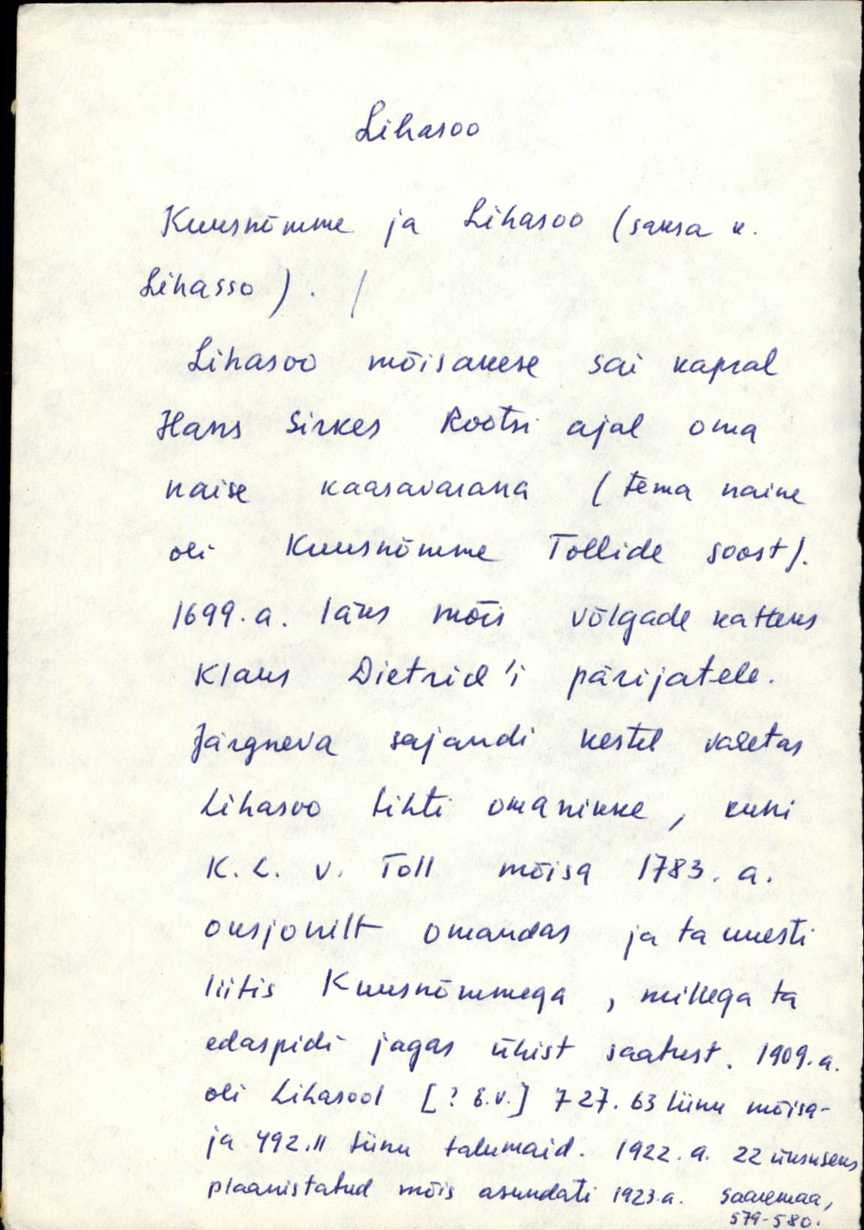 Lihasoo
Kuusnõmme ja Lihasoo (saksa k.
Lihasso). /
Lihasoo mõisakese sai kapral
Hans Sirkes Rootsi ajal oma
naise kaasavarana (tema naine
oli Kuusnõmme Tollide soost).
1699.a. läks mõis võlgade katteks
Klaus Dietrich'i pärijatele.
Järgneva sajandi kestel vahetas
Lihasoo tihti omanikke, kuni
K.L. v. Toll mõisa 1783. a.
oksjonilt omandas ja ta uuesti
liitis Kuusnõmmega, millega ta
edaspidi jagas ühist saatust. 1909.a.
oli Lihasool [? E.V.] 727.63 tiinu mõisa-
ja 492.11 tiinu talumaid. 1922.a. 22 üksuseks
plaanistatud mõis asundati 1923.a. Saaremaa,
579-580.